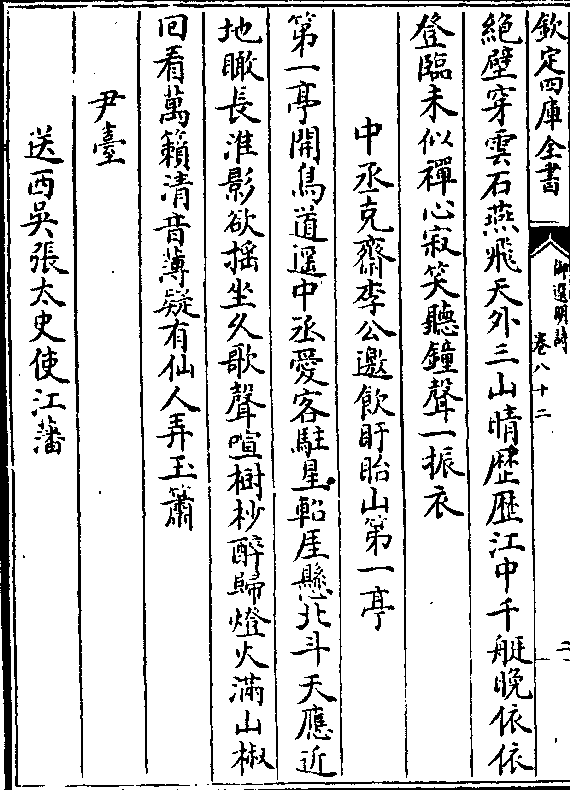 欽定四庫全書
御選明詩
卷八十二
二
絕壁穿雲石燕飛天外三山晴歷歷江中千艇晚依依
登臨未似禪心寂笑聽鐘聲一振衣
中丞克齋李公邀飲盱眙山第一亭
第一亭開鳥道遥中丞愛客駐星軺厓懸北斗天應近
地瞰長淮影欲揺坐久歌聲喧樹杪醉歸燈火滿山椒
回看萬籟清音薄疑有仙人弄玉簫
尹臺
送西吳張太史使江藩